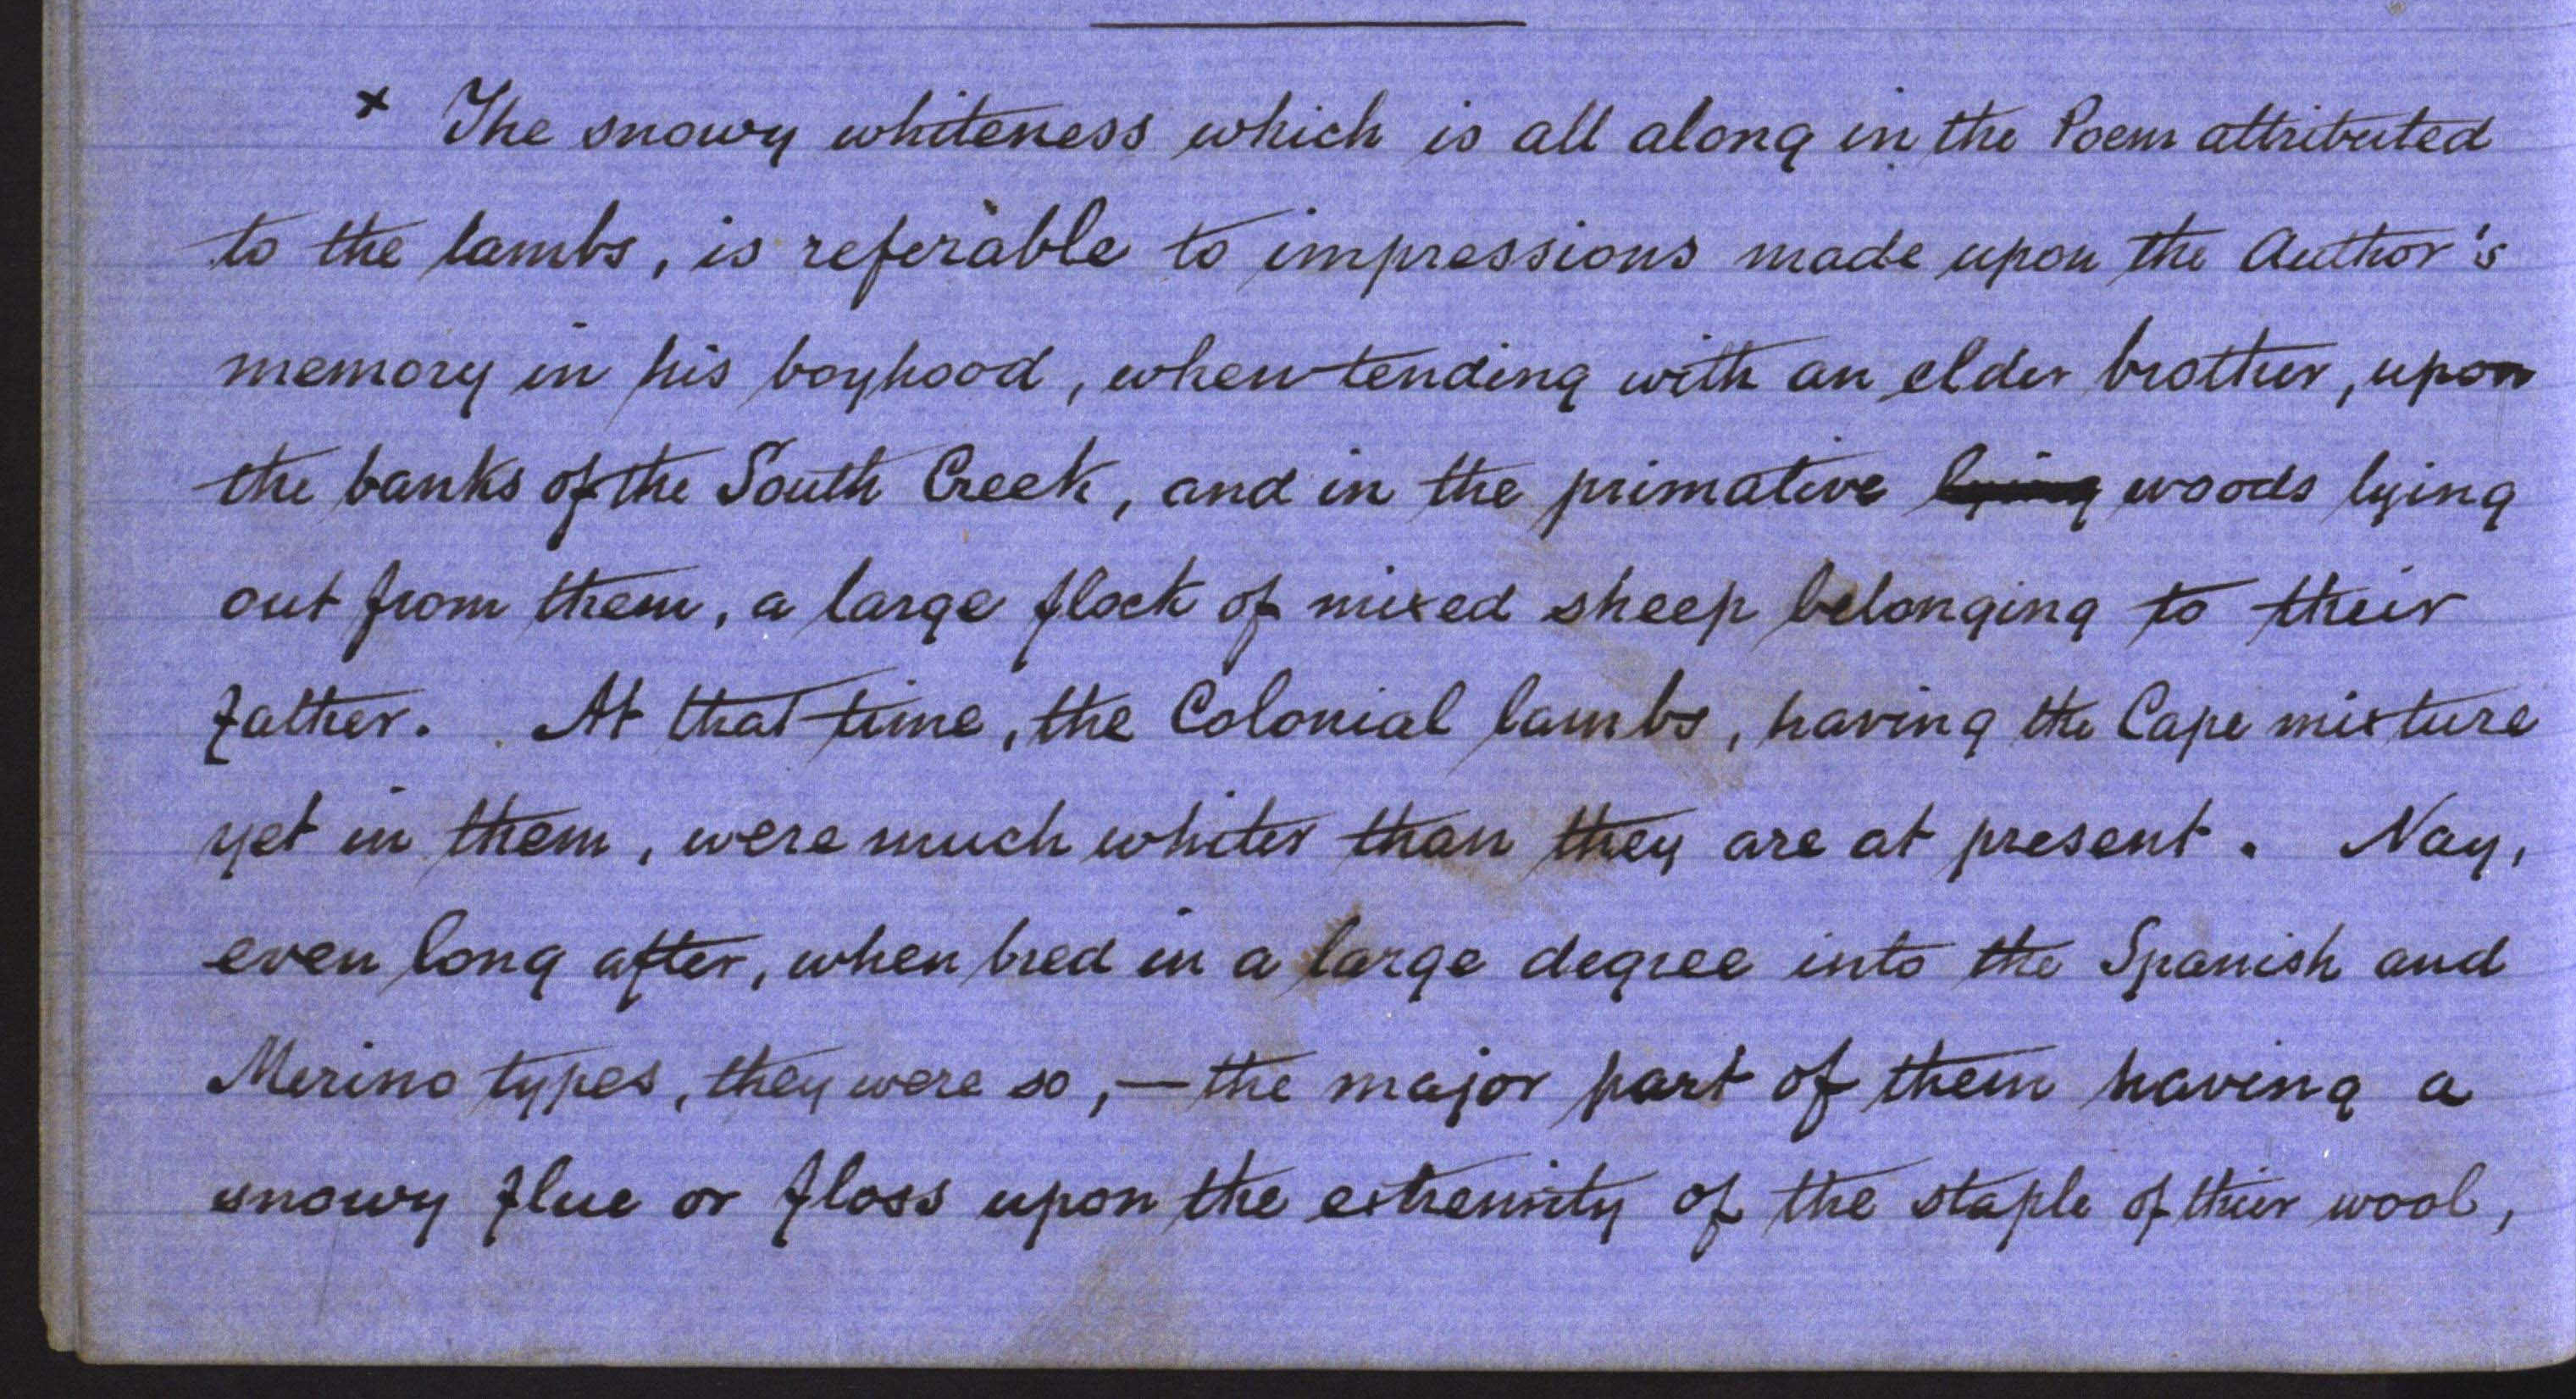 x The snowy whiteness which is all along in the Poem attributed
to the lambs, is referable to impressions made upon the Author's
memory in his boyhood, when tending with an elder brother, upon
the banks of the South Creek, and in the primative lying woods lying
out from them, a large flock of mixed sheep belonging to their
father. At that time, the Colonial lambs, having the Cape mixture
yet in them, were much whiter than they are at present. Nay,
even long after, when bred in a large degree into the Spanish and
Merino types, they were so, — the major part of them having a
snowy flue or floss upon the extremity of the staple of their wool,